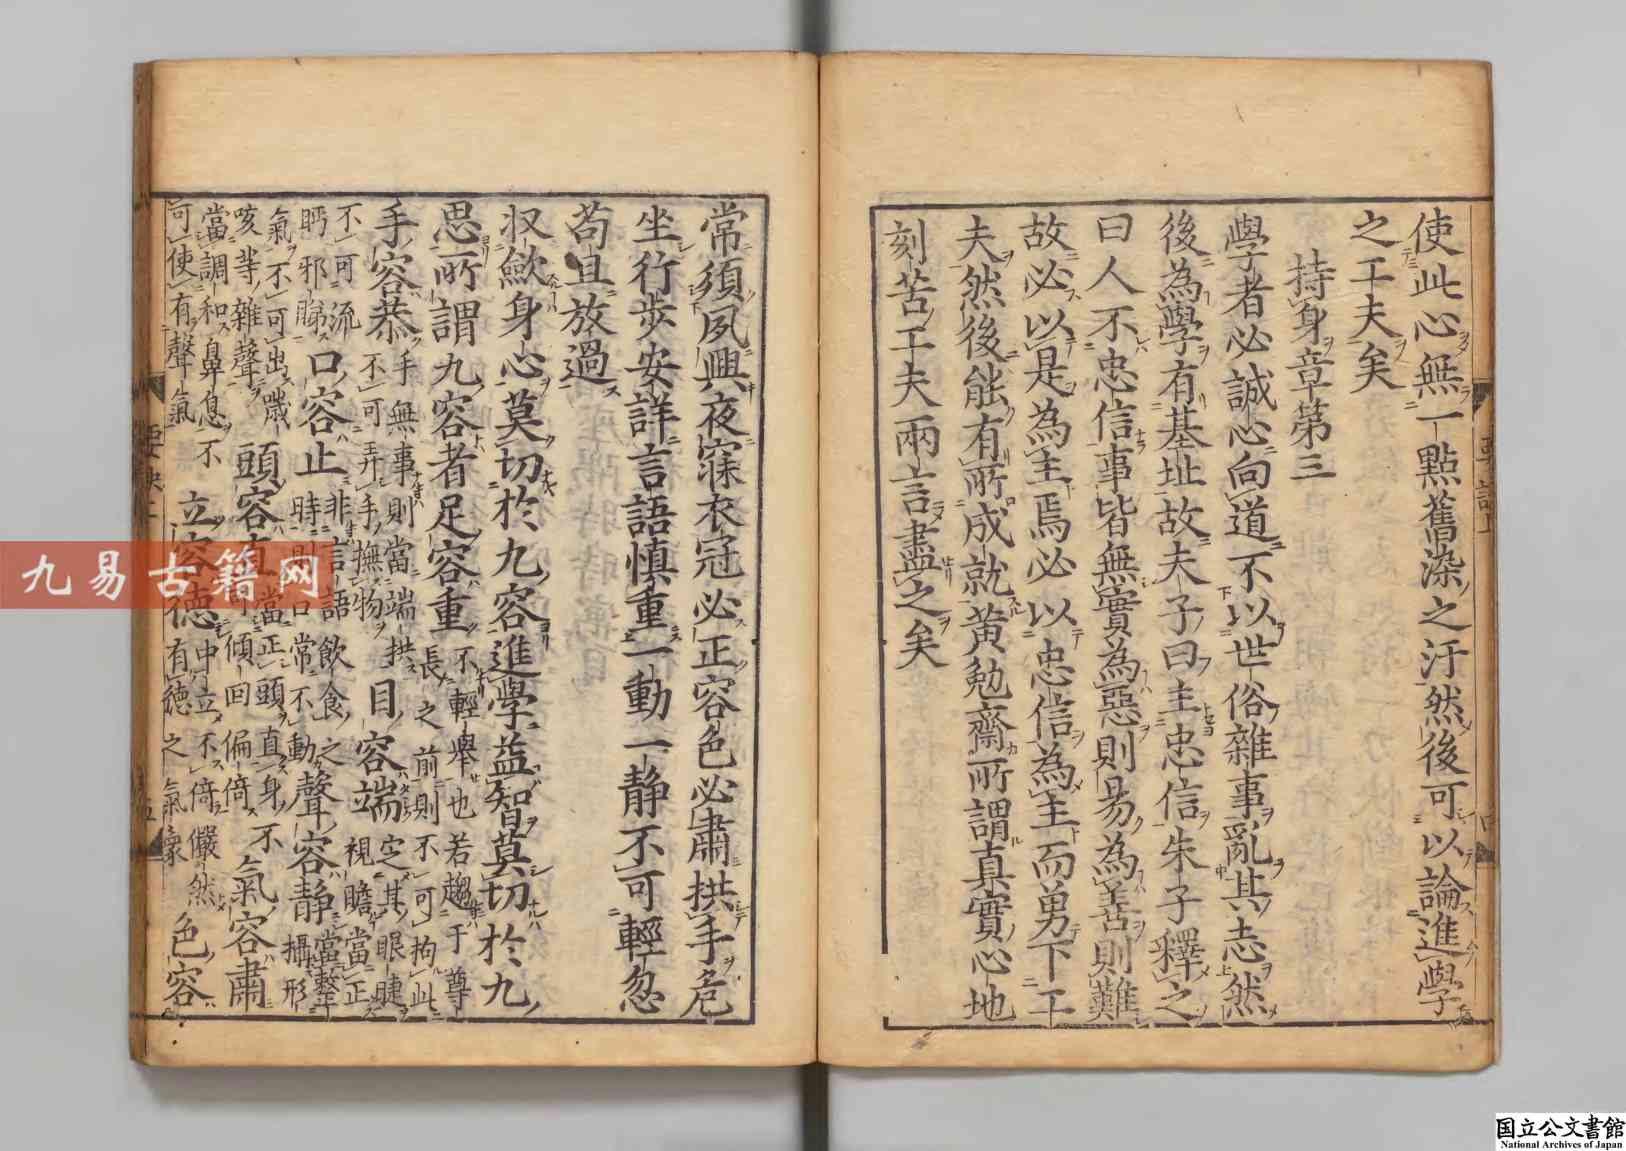 使此心無一點舊染之汙然後可以論進學
之工夫矣
持身章第三
學者必誠心向道不以世俗雜事亂其志然
後為學有基址故夫子曰主忠信朱子釋之
曰人不忠信事皆無實為惡則易為善則難
故必以是為主焉必以忠信為主而勇下工
夫然後能有所成就黃勉齋所謂真實心地
刻苦工夫兩言盡之矣
常須夙興夜寐衣冠必正容色必肅拱手危
坐行步安詳言語慎重一動一静不可輕忽
苟且放過
収斂身心莫切於九容進學益智莫切於九
思所謂九容者足容重不輕舉也若趨于尊
長之前則不可拘此
手容恭手無事則當端拱
不可弄手撫物目容端定其眼睫
視瞻當正
不可流
眄邪睇口容止非言語飲食之
時則口常不動聲容静當整
攝形
氣不可出噦
咳等雜聲頭容直當正頭直身不
可傾回偏倚氣容肅
當調和鼻息不
可使有聲氣立容德中立不倚儼然
有德之氣像色容
九易古籍网
国立公文書館
National Archives of Japan